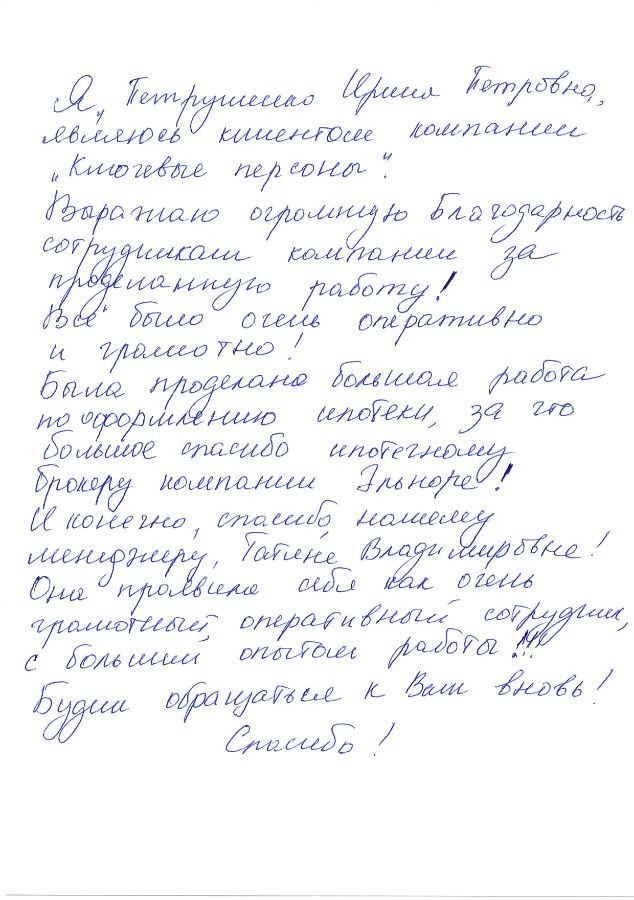 Я, Петрушенко Ирина Петровна,
являюсь клиентом компании
„Ключевые персоны".
Выражаю огромную благодарность
сотрудникам компании за
проделанную работу!
Всё было очень оперативно
и грамотно!
Была проделана большая работа
по оформлению ипотеки, за что
большое спасибо ипотечному
брокеру компании Эльноре!
И конечно, спасибо, нашему
менеджеру, Татьяне Владимировне!
Она проявила себя как очень
грамотный, оперативный сотрудник,
с большим опытом работы!!!
Будем обращаться к Вам вновь!
Спасибо!